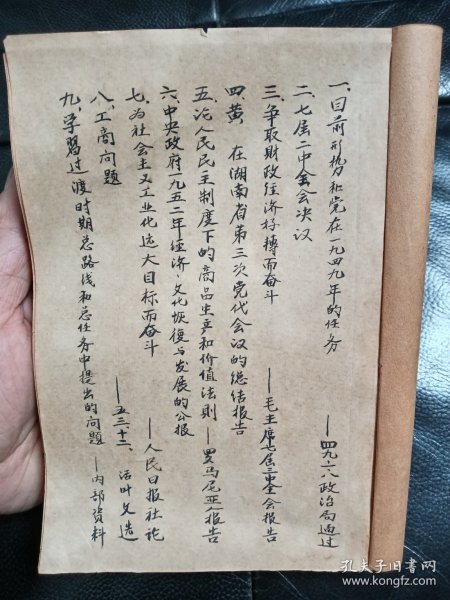 一、目前形势和党在一九四九年的任务
——四九.六.八政治局通过
二、七届二中全会决议
三、争取财政经济好转而奋斗
——毛主席七届三中全会报告
四、黄 在湖南省第三次党代会议的总结报告
五、论人民民主制度下的商品生产和价值法则——罗马尼亚人报告
六、中央政府一九五二年经济、文化恢复与发展的公报
七、为社会主义工业化远大目标而奋斗
——人民日报社论
八、工商问题
——五三.十二、活叶文选
九、学习过渡时期总路线和总任务中提出的问题——内部资料
孔夫子旧书网
www.kongfz.com